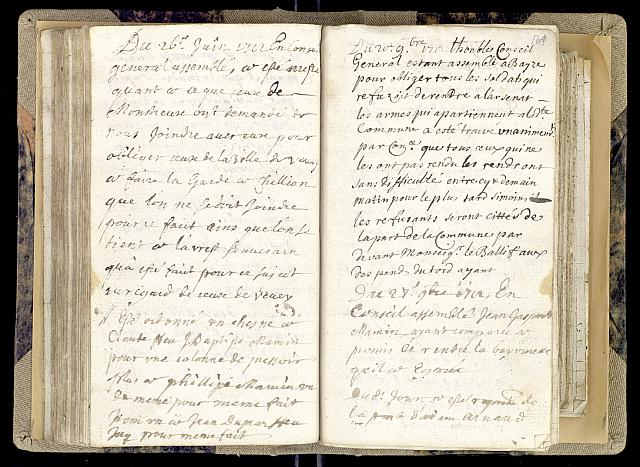 Du 26e. Juin 1712 En Conseil
general assemblé, a esté
quant a ce que ceux de
Monstreux ont demandé de
nous Joindre avec eux pour
obliger ceux de la ville de Vevey
a faire la Garde a Chillion
que lon ne se doit Joindre
pour ce fait ains que lon se
tient a
qua esté fait pour ce sujet
au regard de ceux de Vevey
Est ordonné un chesne a
Claude feu J. Baptiste Mamin
pour une colonne de pressoir
Plus a phillipe Mamin un
de meme pour meme fait
Item un a Jean Dumas feu
pour meme fait
164
Du 9bre 1712 lhonble Conseil
General estant assemblé a Baye
pour obliger tous les soldats qui
refusoit de rendre a larsenat
les armes qui apartiennent a ladte
Commune a esté trouvé unanimemt
par Conce que tous ceux qui ne
les ont pas rendu les rendront
sans difficulté entre cy & demain
matin pour le plus tard
les refusants seront cittés de
la part de la Commune par
devant Monseigr. le Ballif aux
despends du tord ayant
Du 27e 9bre 1712, En
Conseil assemblé Jean
Mamin ayant comparu a
promis de rendre la
quil a
Du d. Jour a esté
la part Arnaud